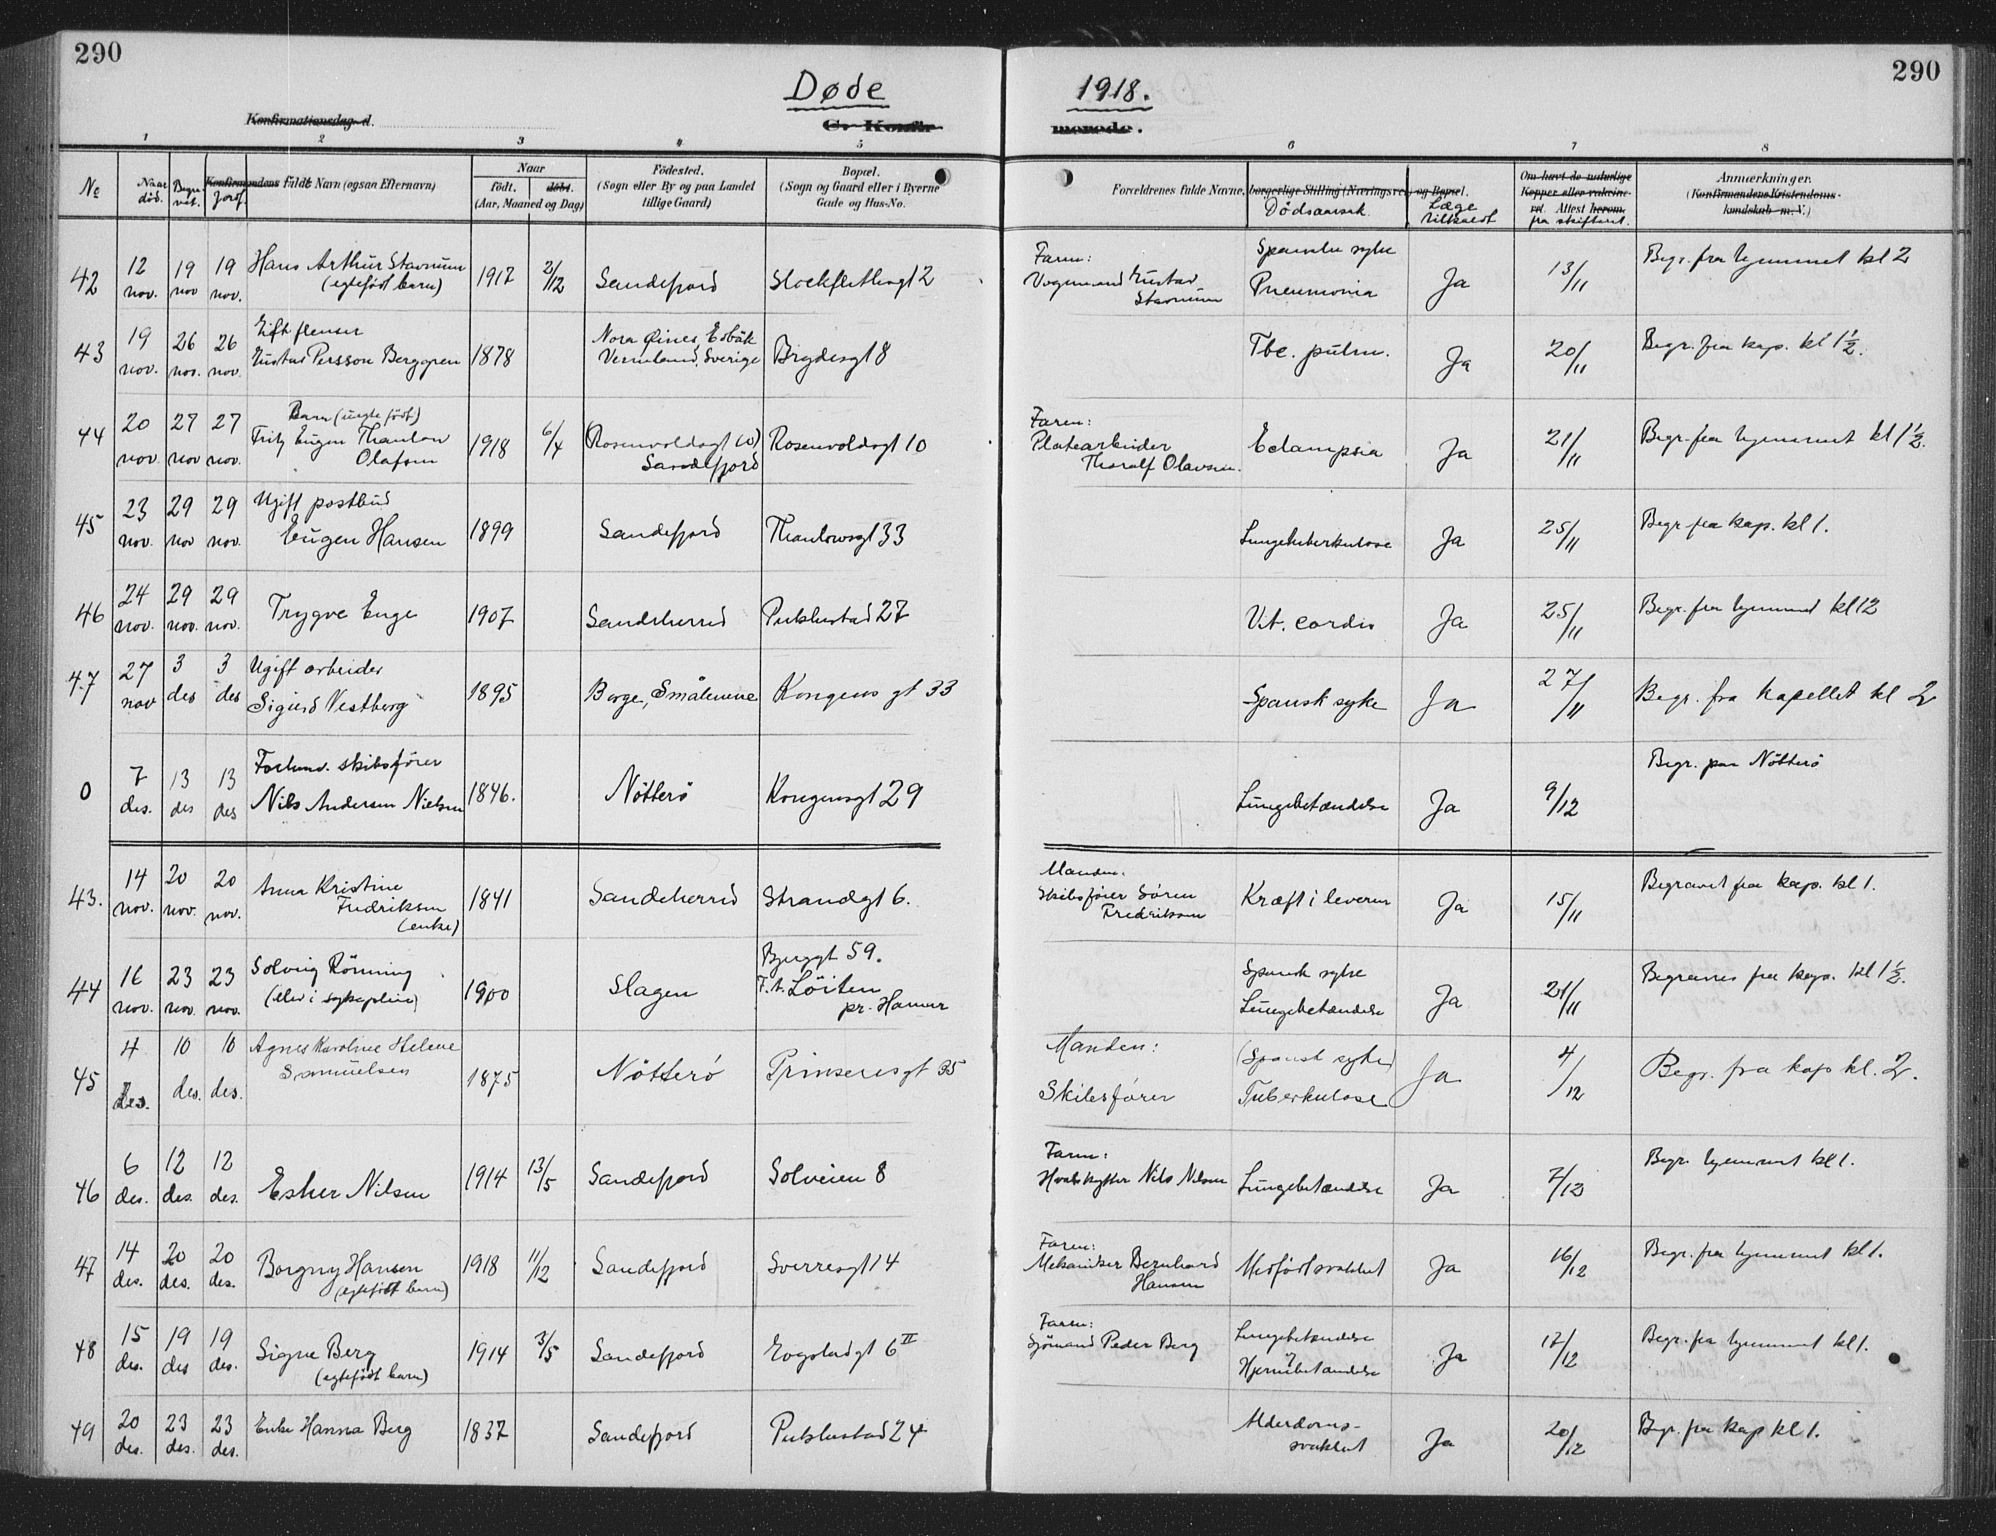 290
290
Døde 1918.
Konfirmationsdag d.
C. Konfir-
monede.
1 2 3 4 5 6 7 8
No
Naar död.
Begra-vet.
Jordf.
Konfirmandens fulde Navn (ogsaa Efternavn)
Naar
født. døbt.
(Aar, Maaned og Dag)
Fødested.
(Sogn eller By og paa Landet tillige Gaard)
Bopæl.
(Sogn og Gaard eller i Byerne Gade og Hus-No.
Forældrenes fulde Navne, borgerlige Stilling (Næringsvei) og Bopæl.
Dödsaarsak.
Læge tilkaldt
Om havt de naturlige Kopper eller vakcine-ret. Attest herom.
fra skifteret.
Anmærkninger.
(Konfirmandens Kristendoms-kundskab m. V.)
42 12 nov. 19 nov 19 nov. Hans Arthur Stavnum (egtefödt barn) 1917 2/12 Sandefjord Stockflethsgt 2 Faren: Vognmand Gustav Stavnum Spanske syke Pneumonia Ja 13/11 Begr. fra hjemmet kl 2
43 19 nov. 26 nov. 26 nov. Gift flenser Gustav Persson Berggren 1878 Nora Öines, Edbäk Vermland, Sverige Brydesgt 8 Tbc. pulm. Ja 20/11 Begr. fra kap. kl 1 1/2.
44 20 nov. 27 nov 27 nov. Barn (uegte födt) Fritz Eugen Thaulow Olafsen 1918 6/4 (Rosenvoldsgt 10) Sandefjord Rosenvoldsgt 10 Faren: Platearbeider Thoralf Olavsen. Eclampsia Ja 21/11 Begr. fra hjemmet kl 1 1/2.
45 23 nov. 29 nov 29 nov. Ugift postbud Eugen Hansen 1899 Sandefjord Thaulowsgt 33 Lungetuberkulose Ja 25/11 Begr. fra kap. kl 1.
46 24 nov. 29 nov. 29 nov. Trygve Enge 1907 Sandeherred Pukkestad 27 Vit. cordis Ja 25/11 Begr. fra hjemmet kl 12
47 27 nov 3 des 3 des Ugift arbeider Sigurd Vestberg 1895 Borge, Smålenene Kongens gt 33 Spansk syke Ja 27/11 Begr. fra kapellet kl 2
0 7 des. 13 des 13 des Forhenv. skibsfører Nils Andersen Nielsen 1846. Nötterö Kongensgt 29 Lungebetændelse Ja 9/12 Begr. paa Nötterö
43. 14 nov. 20 nov. 20 nov. Anna Kristine Fredriksen (enke) 1841 Sandeherred Strandgt 6. Manden. Skibsfører Sören Fredriksen Kræft i leveren Ja 15/11 Begravet fra kap. kl 1.
44 16 nov. 23 nov. 23 nov. Solveig Rönning (elev i sykepleie) 1900 Slagen Bjerggt 59. F.t. Löiten pr. Hamar Spansk syke Lungebetændelse Ja 21/11 Begraves fra kap. kl 1 1/2.
45 4 des. 10 des. 10 des. Agnes Karoline Helene Samuelsen 1875 Nötterö Prinsensgt 35 Manden: Skibsfører (Spansk syke) Tuberkulose Ja 4/12 Begr. fra kap kl. 2.
46 6 des. 12 des. 12 des. Esther Nilsen 1914 13/5 Sandefjord Solveien 8 Faren: Hvalskytter Nils Nilsen Lungebetændelse Ja 7/12 Begr. hjemmet kl 1.
47 14 des. 20 des. 20 des. Borgny Hansen (egtefödt barn) 1918 11/12 Sandefjord Sverresgt 14 Faren: Mekaniker Bernhard Hansen Medfödt svakhet Ja 16/12 Begr. fra hjemmet kl 1.
48 15 des. 19 des 19 des. Signe Berg (egtefödt barn) 1914 3/5 Sandefjord 6 II Faren: Sjömand Peder Berg Lungebetændelse Hjernebetændelse Ja 17/12 Begr. fra hjemmet kl 1.
49 20 des. 23 des. 23 des. Enke Hanna Berg 1837 Sandefjord Pukkestad 24 Alderdoms-svakhet Ja 20/12 Begr. fra kap kl 1.